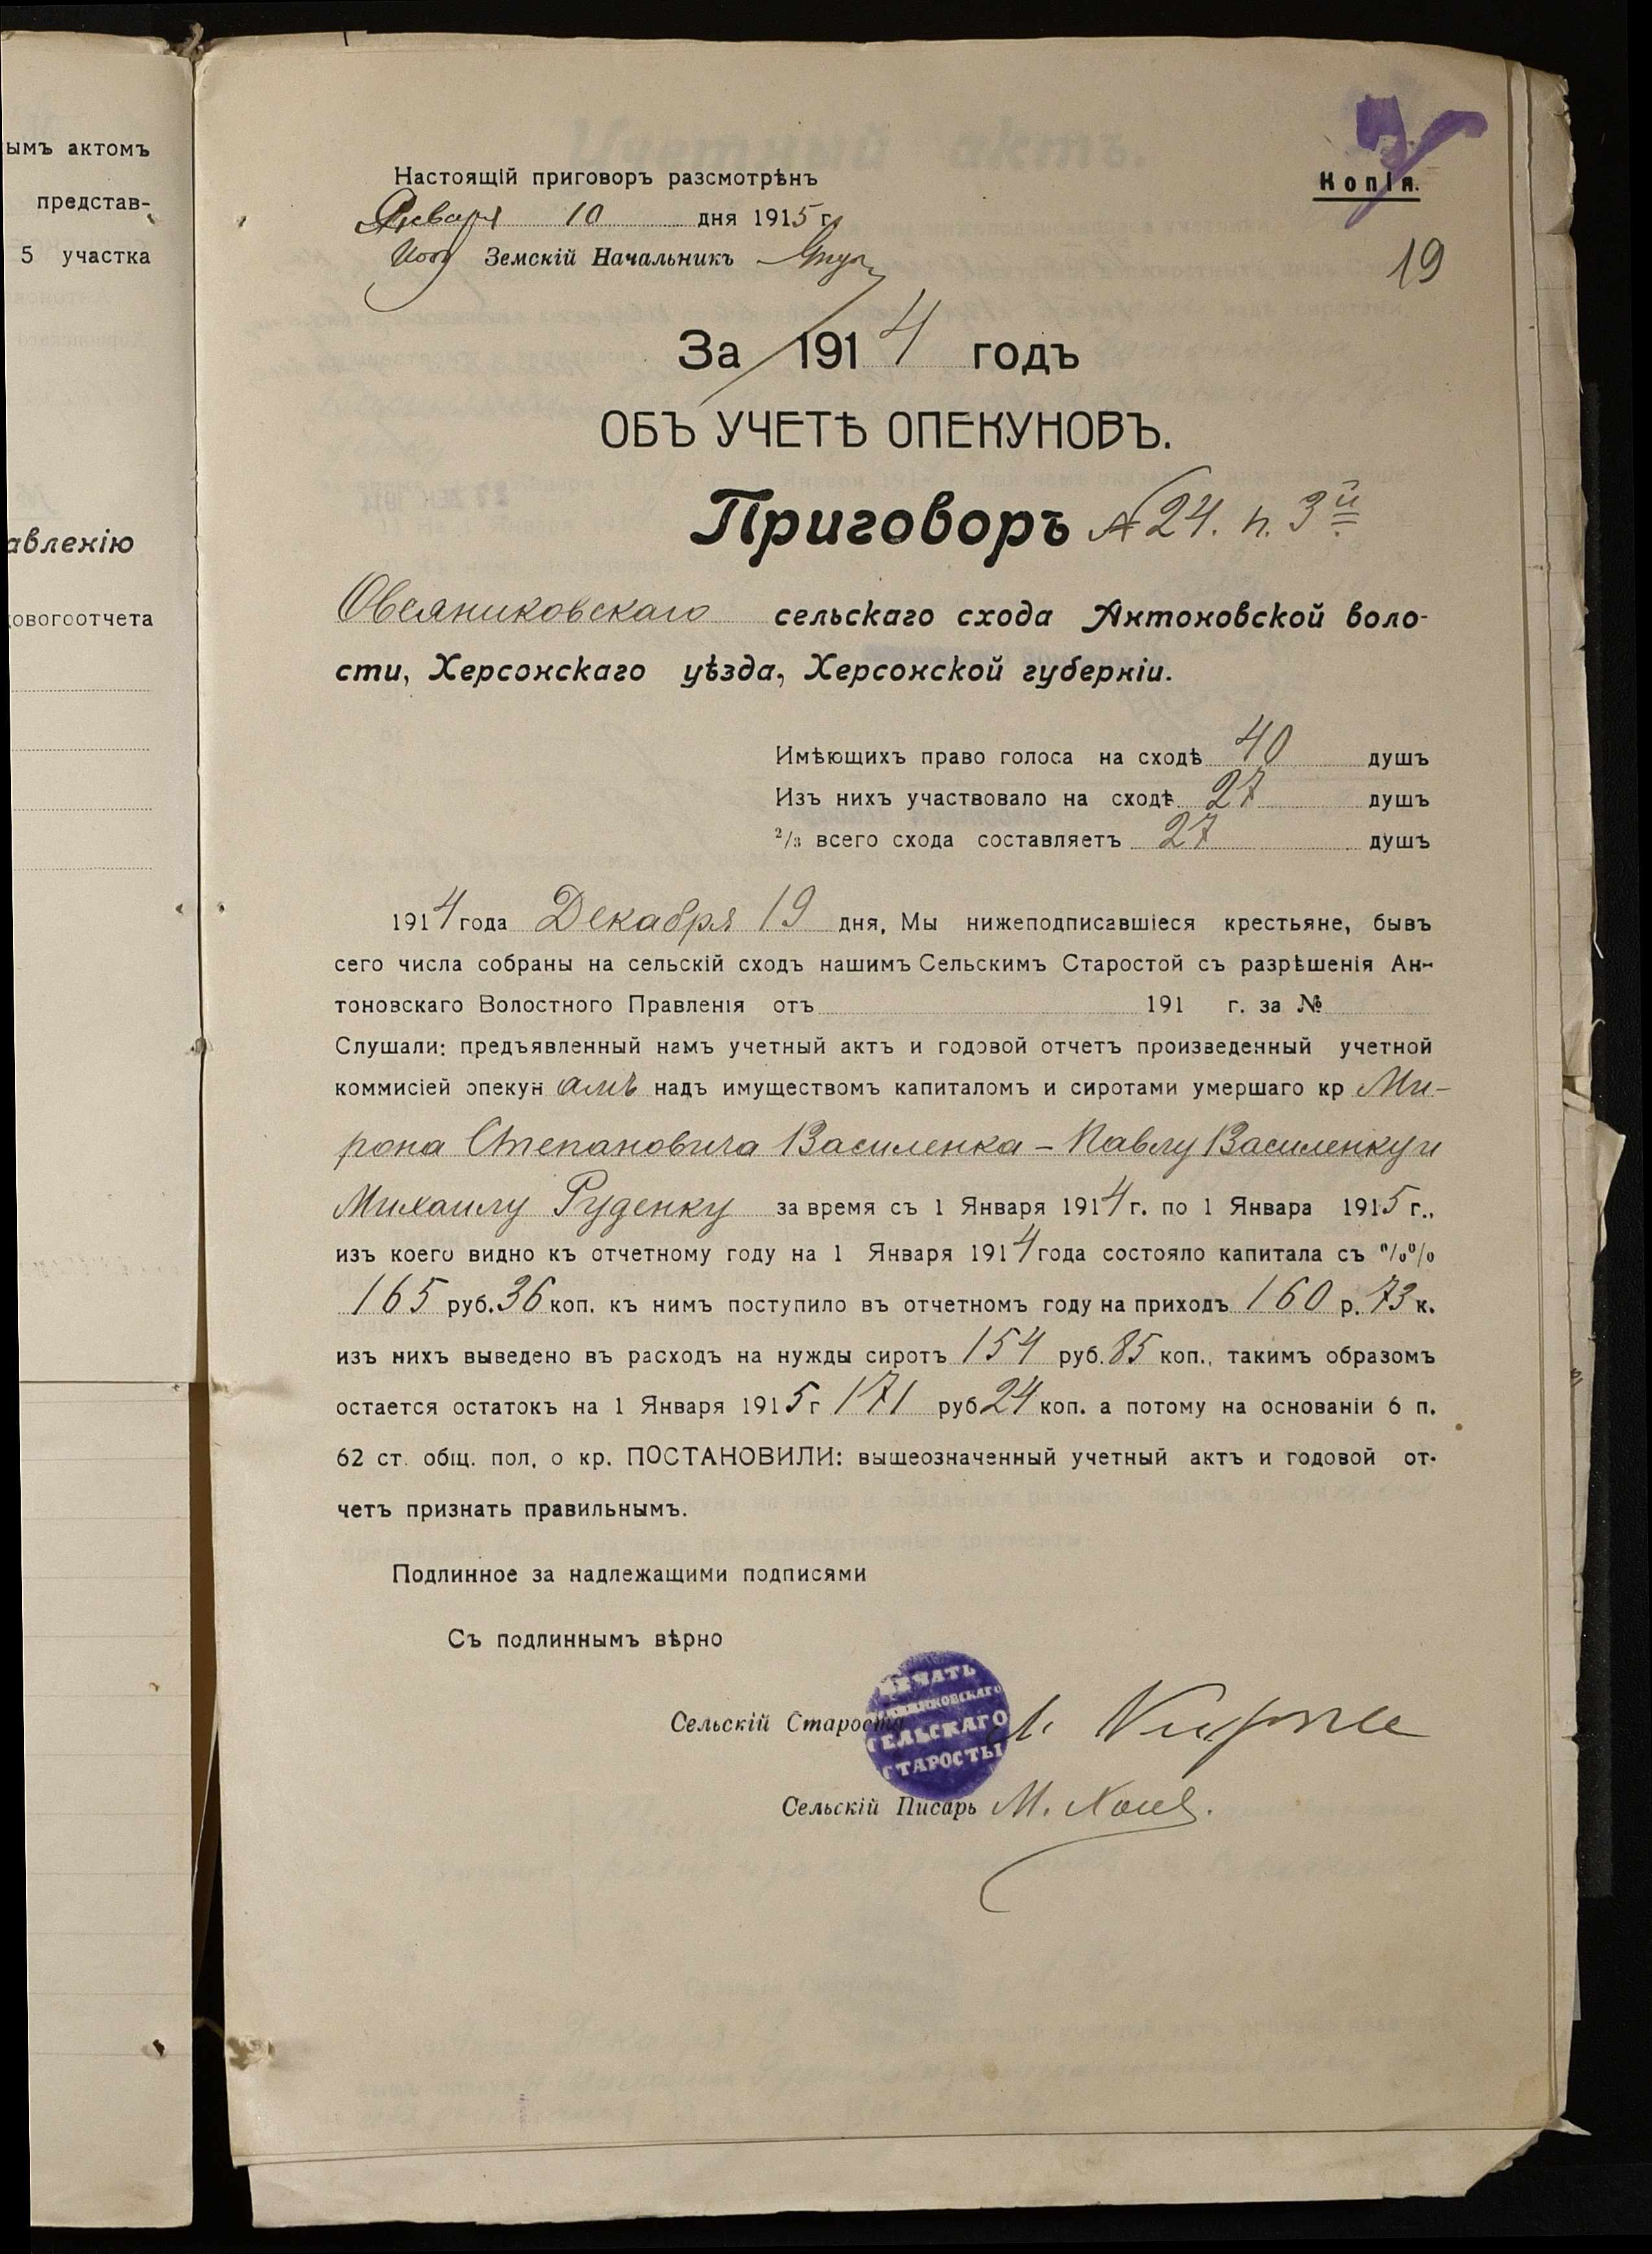 ымъ актомъ
представ-
5 участка
авленію
овогоотчета
Копія.
19
Настоящій приговоръ разсмотрѣнъ
Января 10 дня 1915 г.
Земскій Начальникъ
За 1914 годъ
ОБЪ УЧЕТѢ ОПЕКУНОВЪ.
Приговоръ № 24. п. 3й
Овсяниковскаго сельскаго схода Антоновской воло-
сти, Херсонскаго уѣзда, Херсонской губерніи.
Имѣющихъ право голоса на сходѣ 40 душъ
Изъ нихъ участвовало на сходѣ 27 душъ
2/3 всего схода составляетъ 27 душъ
1914 года Декабря 19 дня, Мы нижеподписавшіеся крестьяне, бывъ
сего числа собраны на сельскій сходъ нашимъ Сельскимъ Старостой съ разрѣшенія Ан-
тоновскаго Волостного Правленія отъ 191 г. за №
Слушали: предъявленный намъ учетный актъ и годовой отчетъ произведенный учетной
коммисіей опекун амъ надъ имуществомъ капиталомъ и сиротами умершаго кр Ми-
рона Степановича Василенка – Павлу Василенку и
Михаилу Руденку за время съ 1 Января 1914 г. по 1 Января 1915 г.,
изъ коего видно къ отчетному году на 1 Января 1914 года состояло капитала съ %%
165 руб. 36 коп. къ нимъ поступило въ отчетномъ году на приходъ 160 р. 73 к.
изъ нихъ выведено въ расходъ на нужды сиротъ 154 руб. 85 коп., такимъ образомъ
остается остатокъ на 1 Января 1915 г 171 руб 24 коп. а потому на основаніи 6 п.
62 ст. общ. пол. о кр. ПОСТАНОВИЛИ: вышеозначенный учетный актъ и годовой от-
четъ признать правильнымъ.
Подлинное за надлежащими подписями
Съ подлиннымъ вѣрно
Сельскій Староста
ПЕЧАТЬ
СЕЛЬСКАГО
СТАРОСТЫ
Сельскій Писарь М.